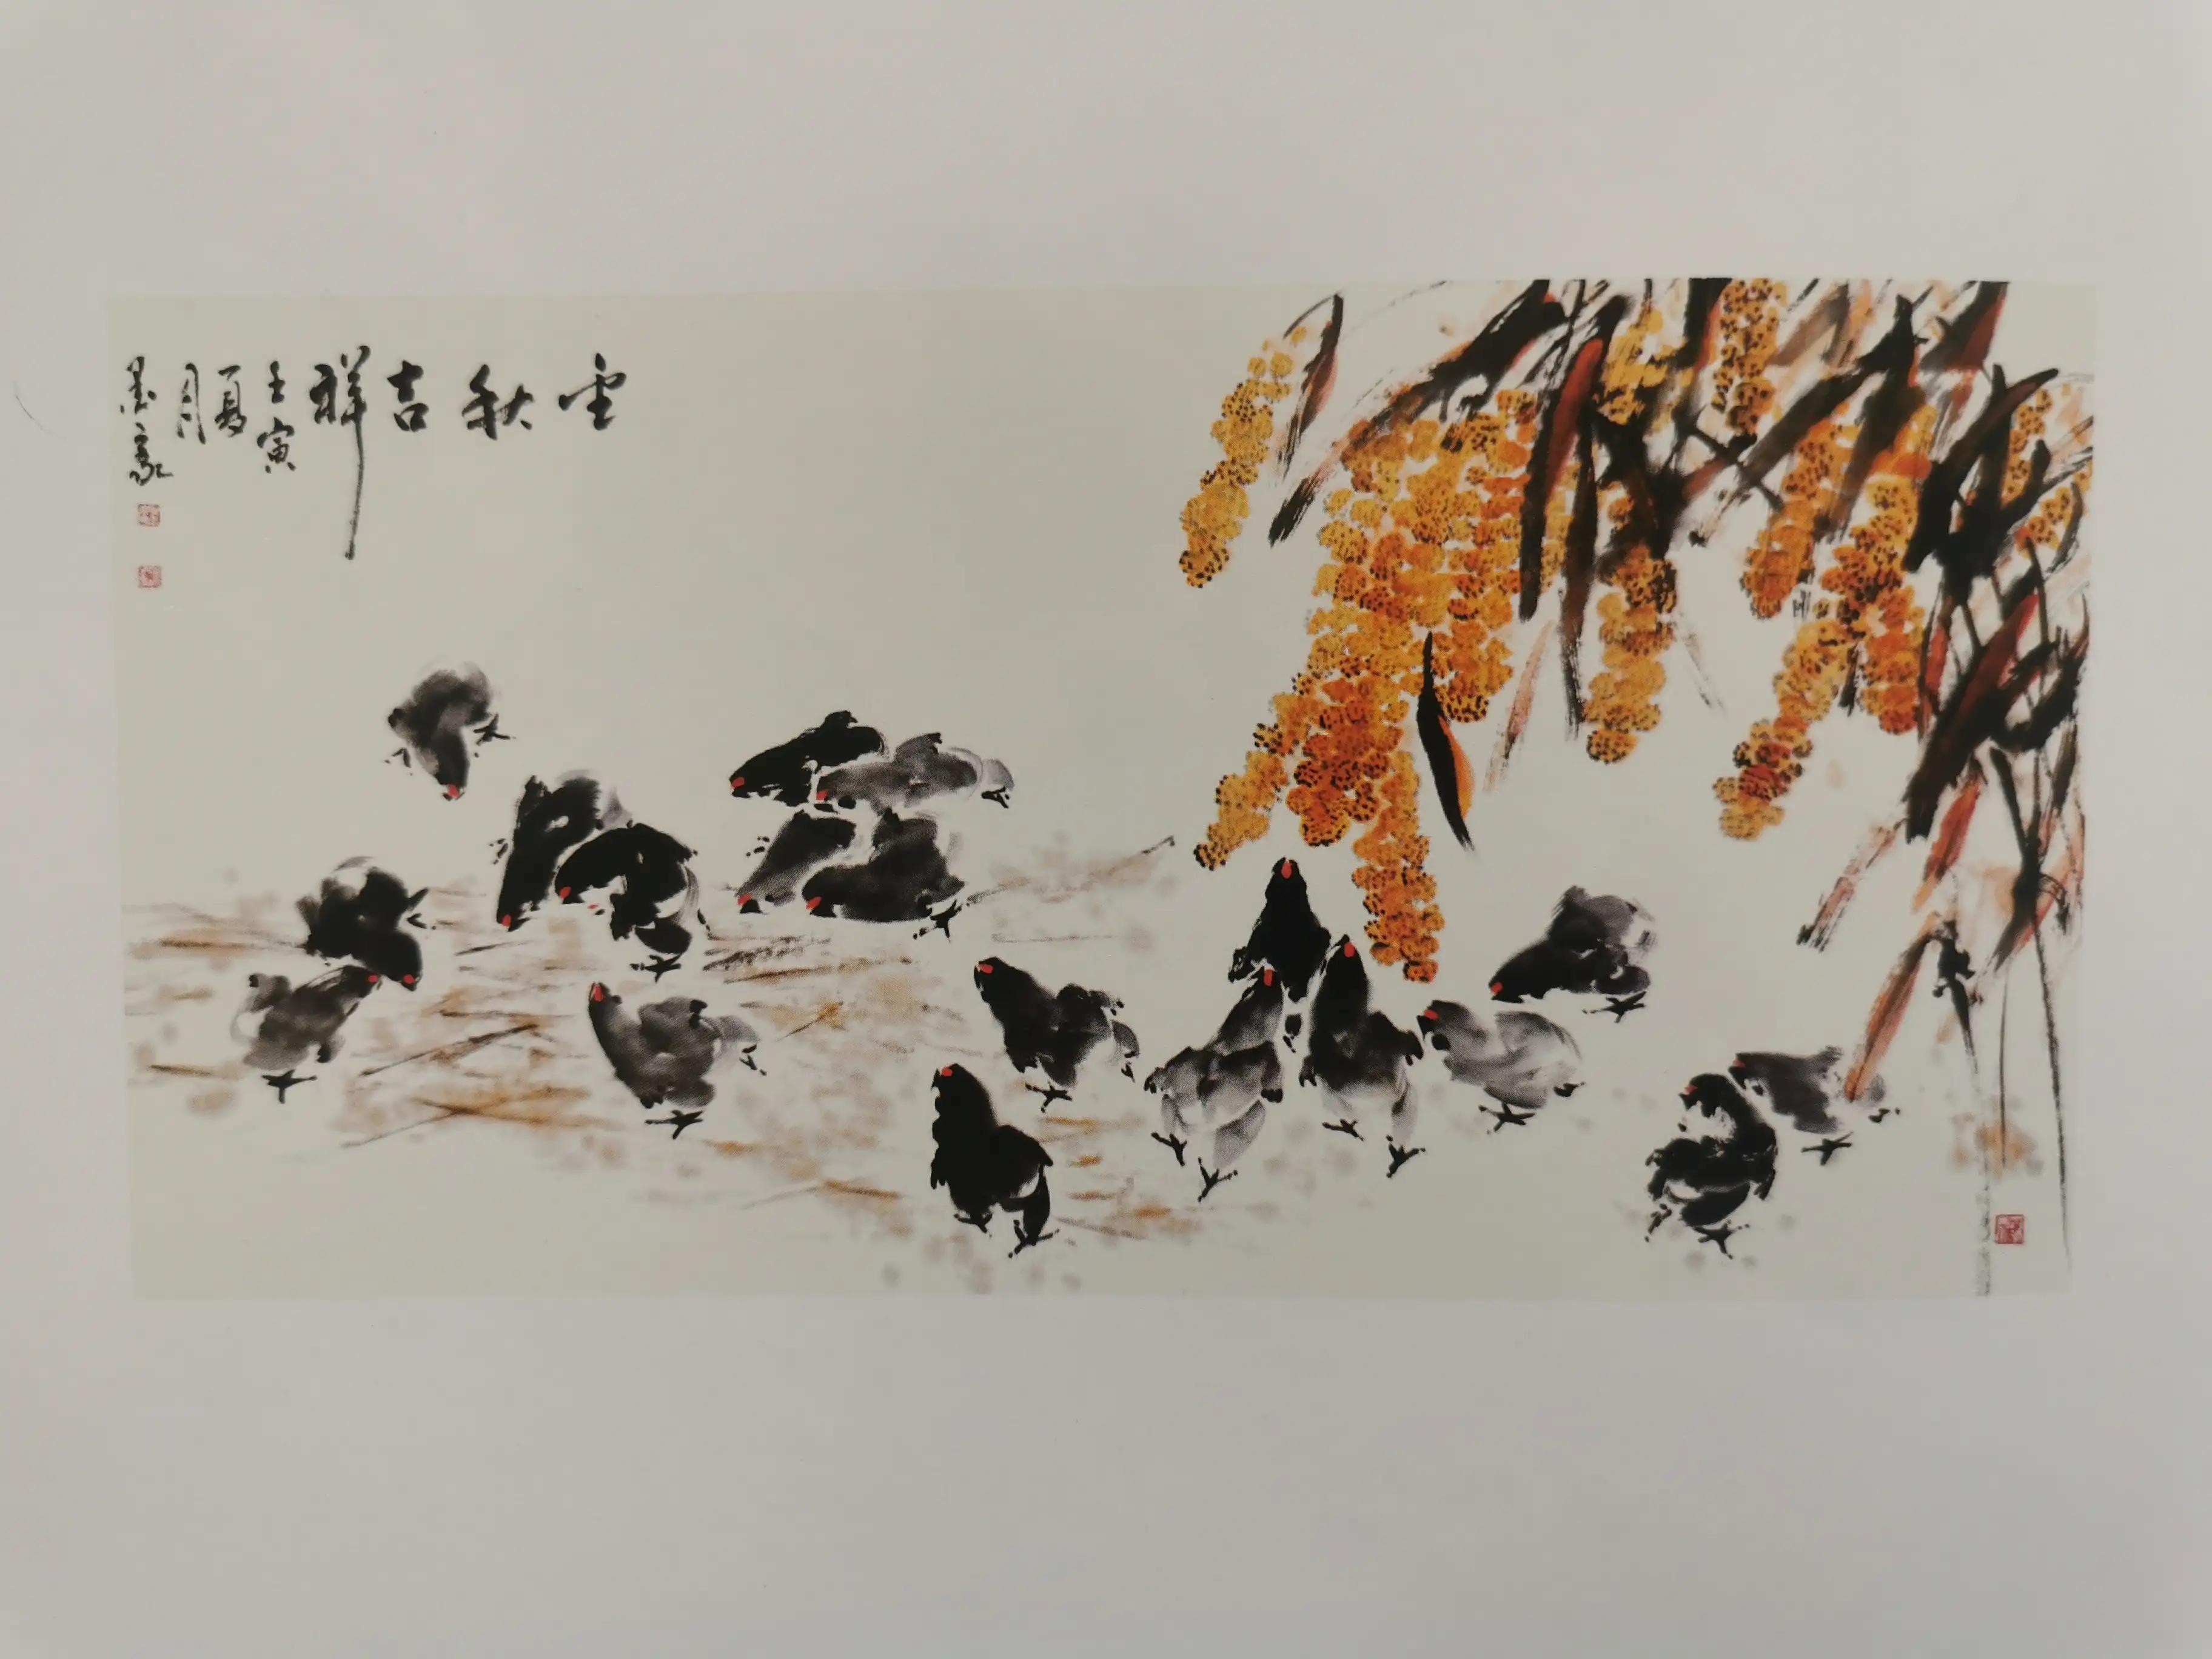 金秋吉祥
壬寅
夏
月
墨豪